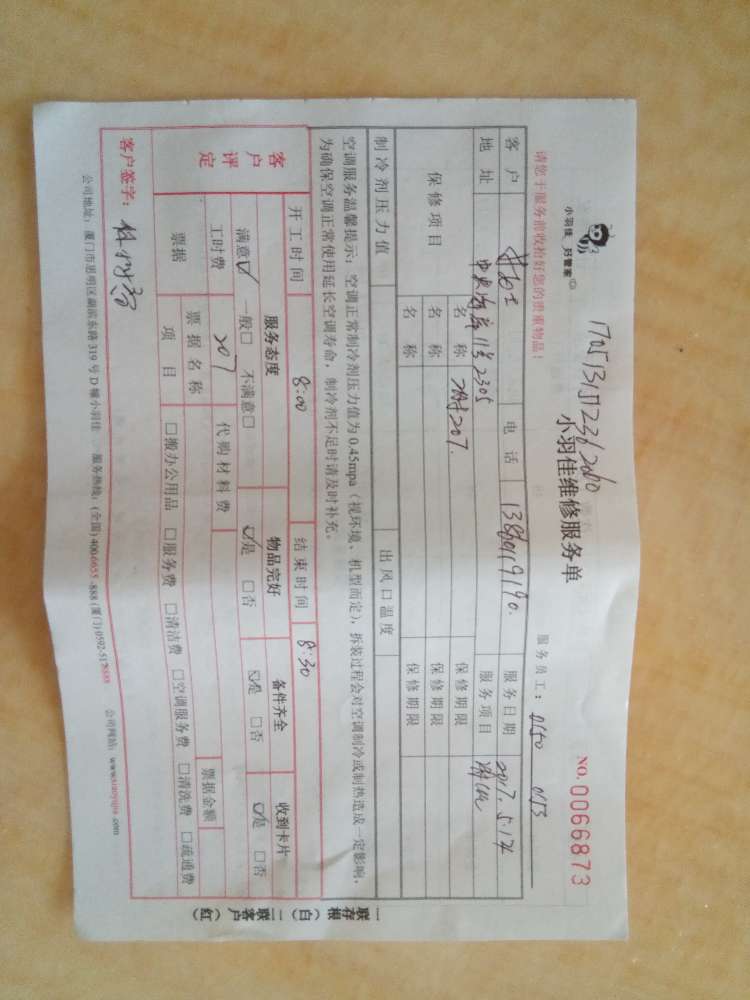 小羽佳 好管家
小羽佳维修服务单
NO.0066873
请您于服务前收拾好您的贵重物品!
服务员工: 0150 053
客户 电话 服务日期 2017.5.17
地址 中央海岸11号2305 服务项目
保修项目 名称 207. 保修期限
名称 保修期限
名称 保修期限
制冷剂压力值 出风口温度
空调服务温馨提示:空调正常制冷剂压力值为0.45mpa(视环境、机型而定),拆装过程会对空调制冷或制热造成一定影响,
为确保空调正常使用延长空调寿命,制冷剂不足时请及时补充。
开工时间 8:00 结束时间 8:30
客户评定
服务态度 物品完好 备件齐全 收到卡片
满意☑ 一般□ 不满意□ ☑是 □否 ☑是 □否 ☑是 □否
工时费 207 代购材料费
票据 票据名称 票据金额
项目 □搬办公用品 □服务费 □清洁费 □空调服务费 □清洗费 □疏通费
客户签字:
公司地址:厦门市思明区湖滨东路319号D幢小羽佳 服务热线:(全国)400-6655-888(厦门)0592-5178888 公司网站:www.xiaoyujia.com
一联存根(白)二联客户(红)